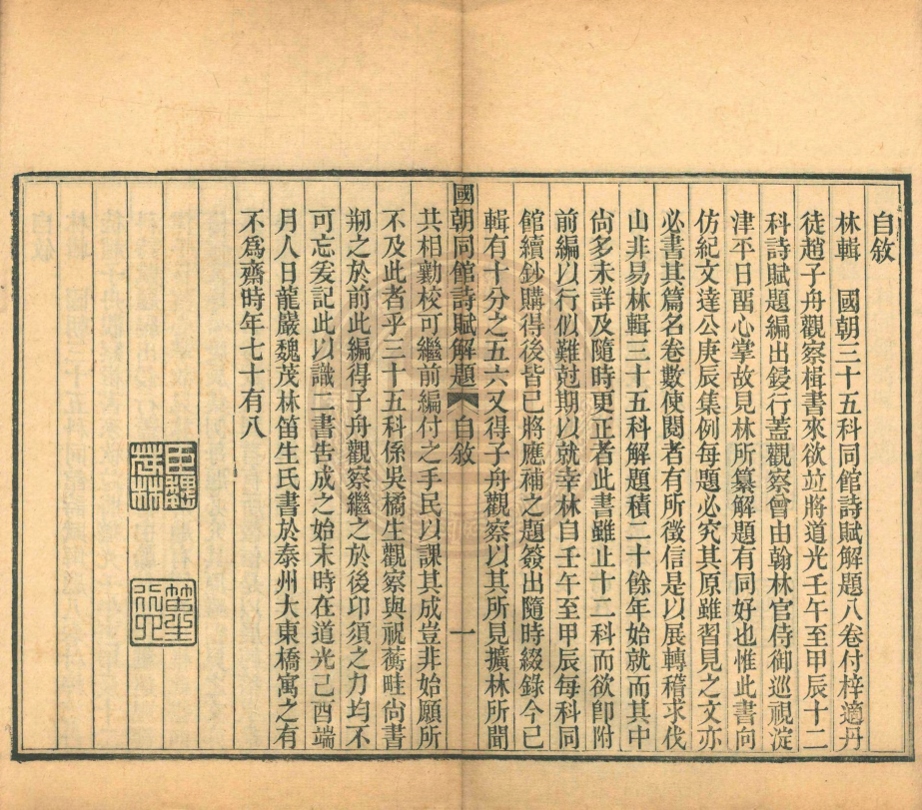 自敘
林輯　國朝三十五科同館詩賦解題八卷付梓適丹
徒趙子舟觀察楫書來欲並將道光壬午至甲辰十二
科詩賦題編出鋟行蓋觀察曾由翰林官侍御巡視淀
津平日畱心掌故見林所纂解題有同好也惟此書向
仿紀文達公庚辰集例每題必究其原雖習見之文亦
必書其篇名卷數使閱者有所徵信是以展轉稽求伐
山非易林輯三十五科解題積二十餘年始就而其中
尙多未詳及隨時更正者此書雖止十二科而欲卽附
前編以行似難尅期以就幸林自壬午至甲辰每科同
館續鈔購得後皆已將應補之題簽出隨時綴錄今已
輯有十分之五六又得子舟觀察以其所見擴林所聞
國朝同館詩賦解題　自敘　一
共相勷校可繼前編付之手民以課其成豈非始願所
不及此者乎三十五科係吳橘生觀察與祝蘅畦尙書
刱之於前此編得子舟觀察繼之於後卬須之力均不
可忘爰記此以識二書告成之始末時在道光己酉端
月人日龍巖魏茂林笛生氏書於泰州大東橋寓之有
不爲齋時年七十有八
臣魏茂林
笛生